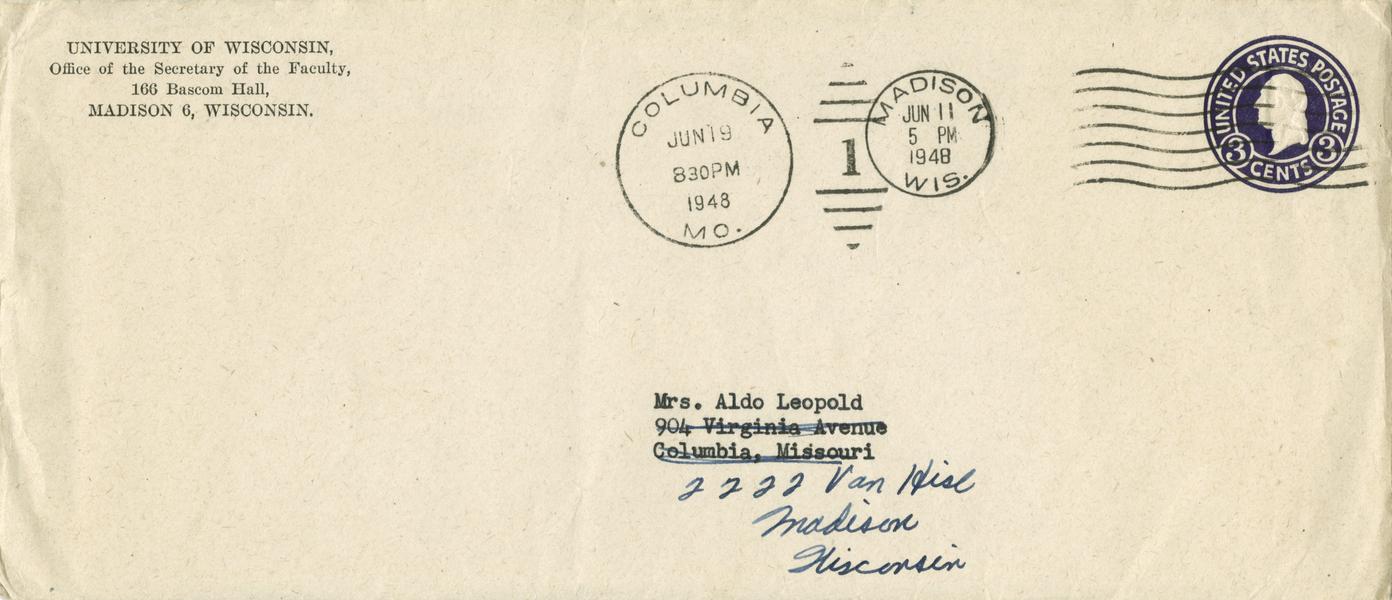 UNIVERSITY OF WISCONSIN,
Office of the Secretary of the Faculty,
166 Bascom Hall,
MADISON 6, WISCONSIN.
COLUMBIA
JUN 19
830PM
1948
MO.
1
MADISON
JUN 11
5 PM
1948
WIS.
UNITED STATES POSTAGE
3 CENTS 3
Mrs. Aldo Leopold
904 Virginia Avenue
Columbia, Missouri
2222 Van Hise
Madison
Wisconsin